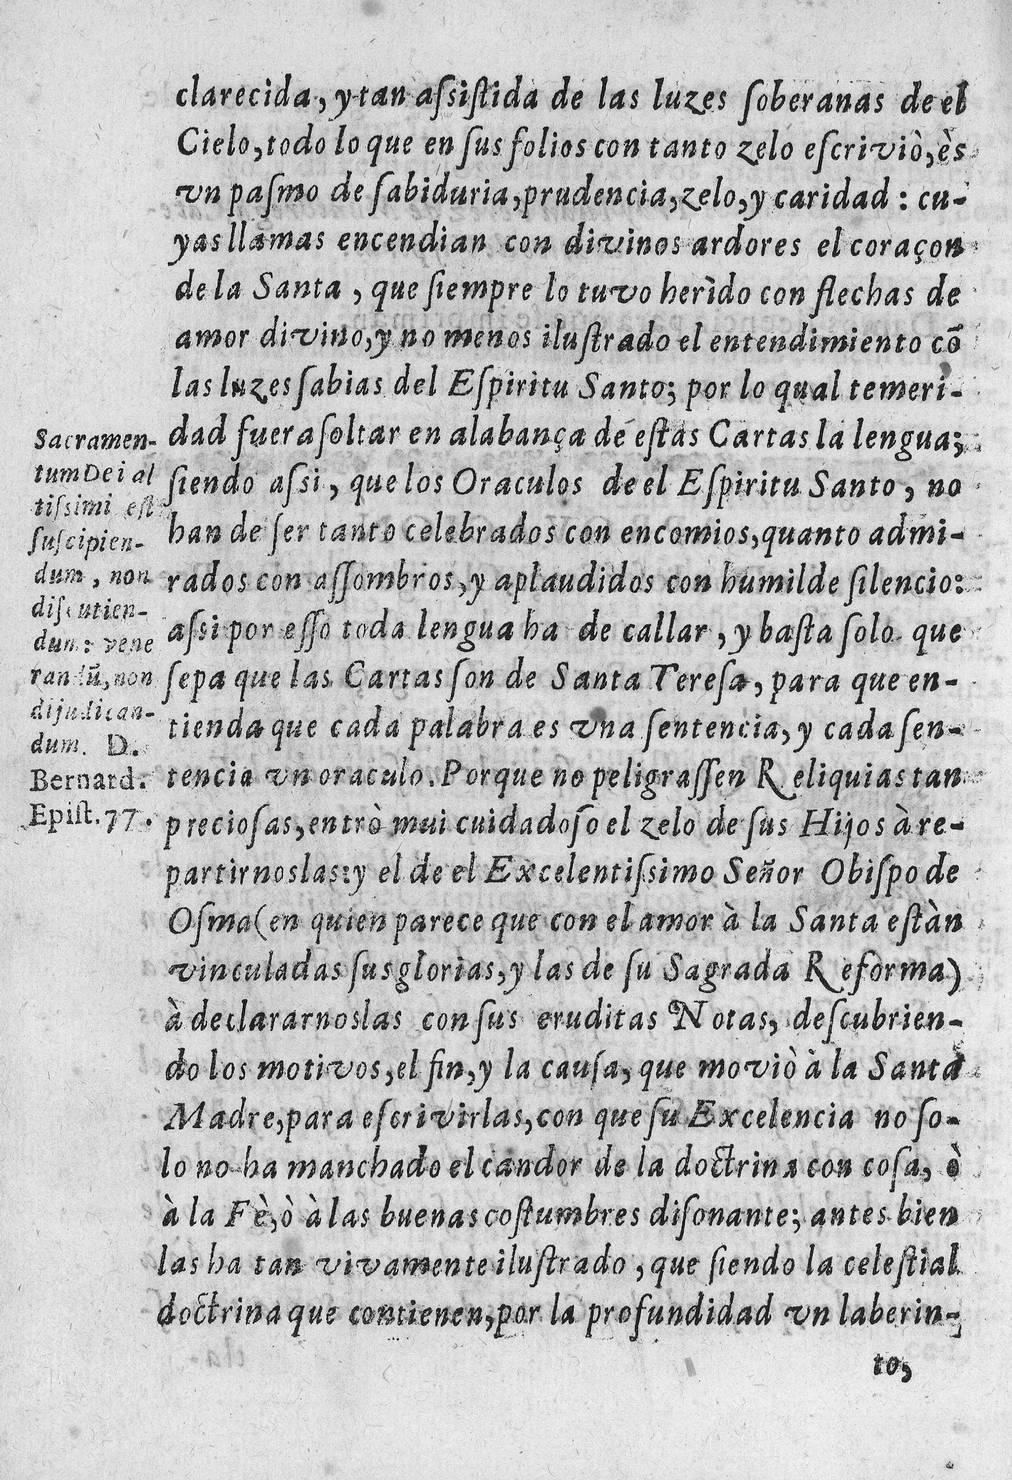 clarecida, y tan assistida de las luzes soberanas de el
Cielo, todo lo que en sus folios con tanto zelo escriviò, ès
vn pasmo de sabiduria, prudencia, zelo, y caridad : cu-
yas llamas encendian con divinos ardores el coraçon
de la Santa , que siempre lo tuvo herìdo con flechas de
amor divino, y no menos ilustrado el entendimiento cõ
las luzes sabias del Espiritu Santo; por lo qual temeri-
dad fuera soltar en alabança de estas Cartas la lengua;
siendo assi , que los Oraculos de el Espiritu Santo , no
han de ser tanto celebrados con encomios, quanto admi-
rados con assombros, y aplaudidos con humilde silencio:
assi por esso toda lengua ha de callar , y basta solo que
sepa que las Cartas son de Santa Teresa, para que en-
tienda que cada palabra es vna sentencia, y cada sen-
tencia vn oraculo. Porque no peligrassen Reliquias tan
preciosas, entrò mui cuidadoso el zelo de sus Hijos à re-
partirnoslas: y el de el Excelentissimo Señor Obispo de
Osma (en quien parece que con el amor à la Santa estàn
vinculadas sus glorias, y las de su Sagrada Reforma)
à declararnoslas con sus eruditas Notas, descubrien-
do los motivos, el fin, y la causa, que moviò à la Santa
Madre, para escrivirlas, con que su Excelencia no so-
lo no ha manchado el candor de la doctrina con cosa, ò
à la Fè, ò à las buenas costumbres disonante; antes bien
las ha tan vivamente ilustrado , que siendo la celestial
doctrina que contienen, por la profundidad vn laberin-
to,
Sacramen-
tum Dei al
tissimi est
suscipien-
dum , non
discutien-
dum: vene
randũ, non
dijudican-
dum. D.
Bernard.
Epist. 77.